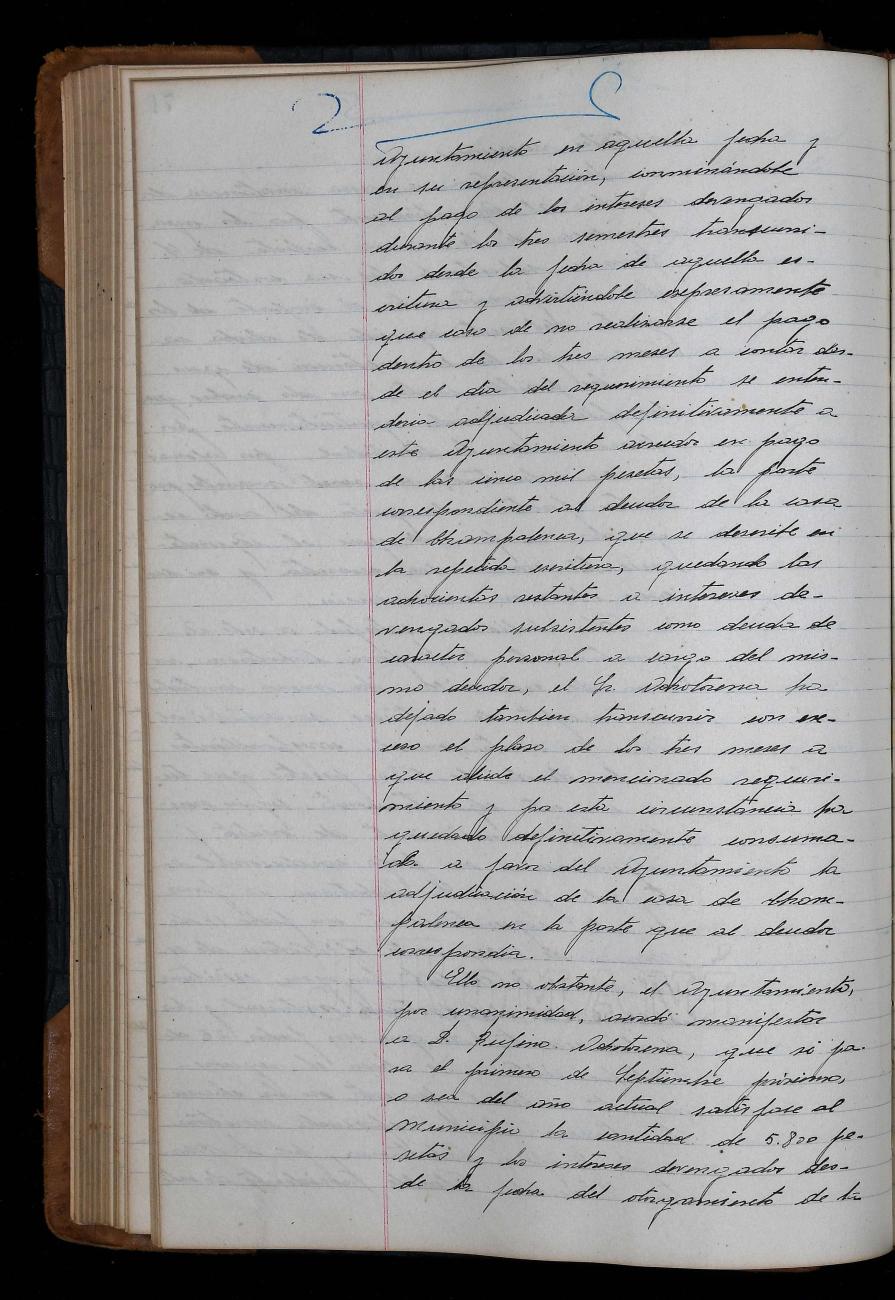 Ayuntamiento en aquella fecha y
en su representación, conminándole
al pago de los intereses devengados
durante los tres semestres transcurri-
dos desde la fecha de aquella es-
critura y advirtiéndole expresamente
que caso de no realizarse el pago
dentro de los tres meses a contar des-
de el día del requerimiento se enten-
deria adjudicada definitivamente a
este Ayuntamiento acreedor en pago
de las cinco mil pesetas, la parte
correspondiente al deudor de la casa
de Champalenea, que se describe en
la repetida escritura, quedando las
ochocientas restantes e intereses de-
vengados subsistentes como deuda de
caracter personal a cargo del mis-
mo deudor, el Sr. Ochotorena ha
dejado tambien transcurrir con ex-
ceso el plazo de los tres meses a
que alude el mencionado requeri-
miento y por esta circunstancia ha
quedado definitivamente consuma-
da a favor del Ayuntamiento la
adjudicación de la casa de Cham-
palenea en la parte que al deudor
correspondia.
Ello no obstante, el Ayuntamiento,
por unanimidad, acordó manifestar
a D. Rufino Ochotorena, que si pa-
ra el primero de Septiembre próximo,
o sea del año actual satisface al
Municipio la cantidad de 5.800 pe-
setas y los intereses devengados des-
de la fecha del otorgamiento de la